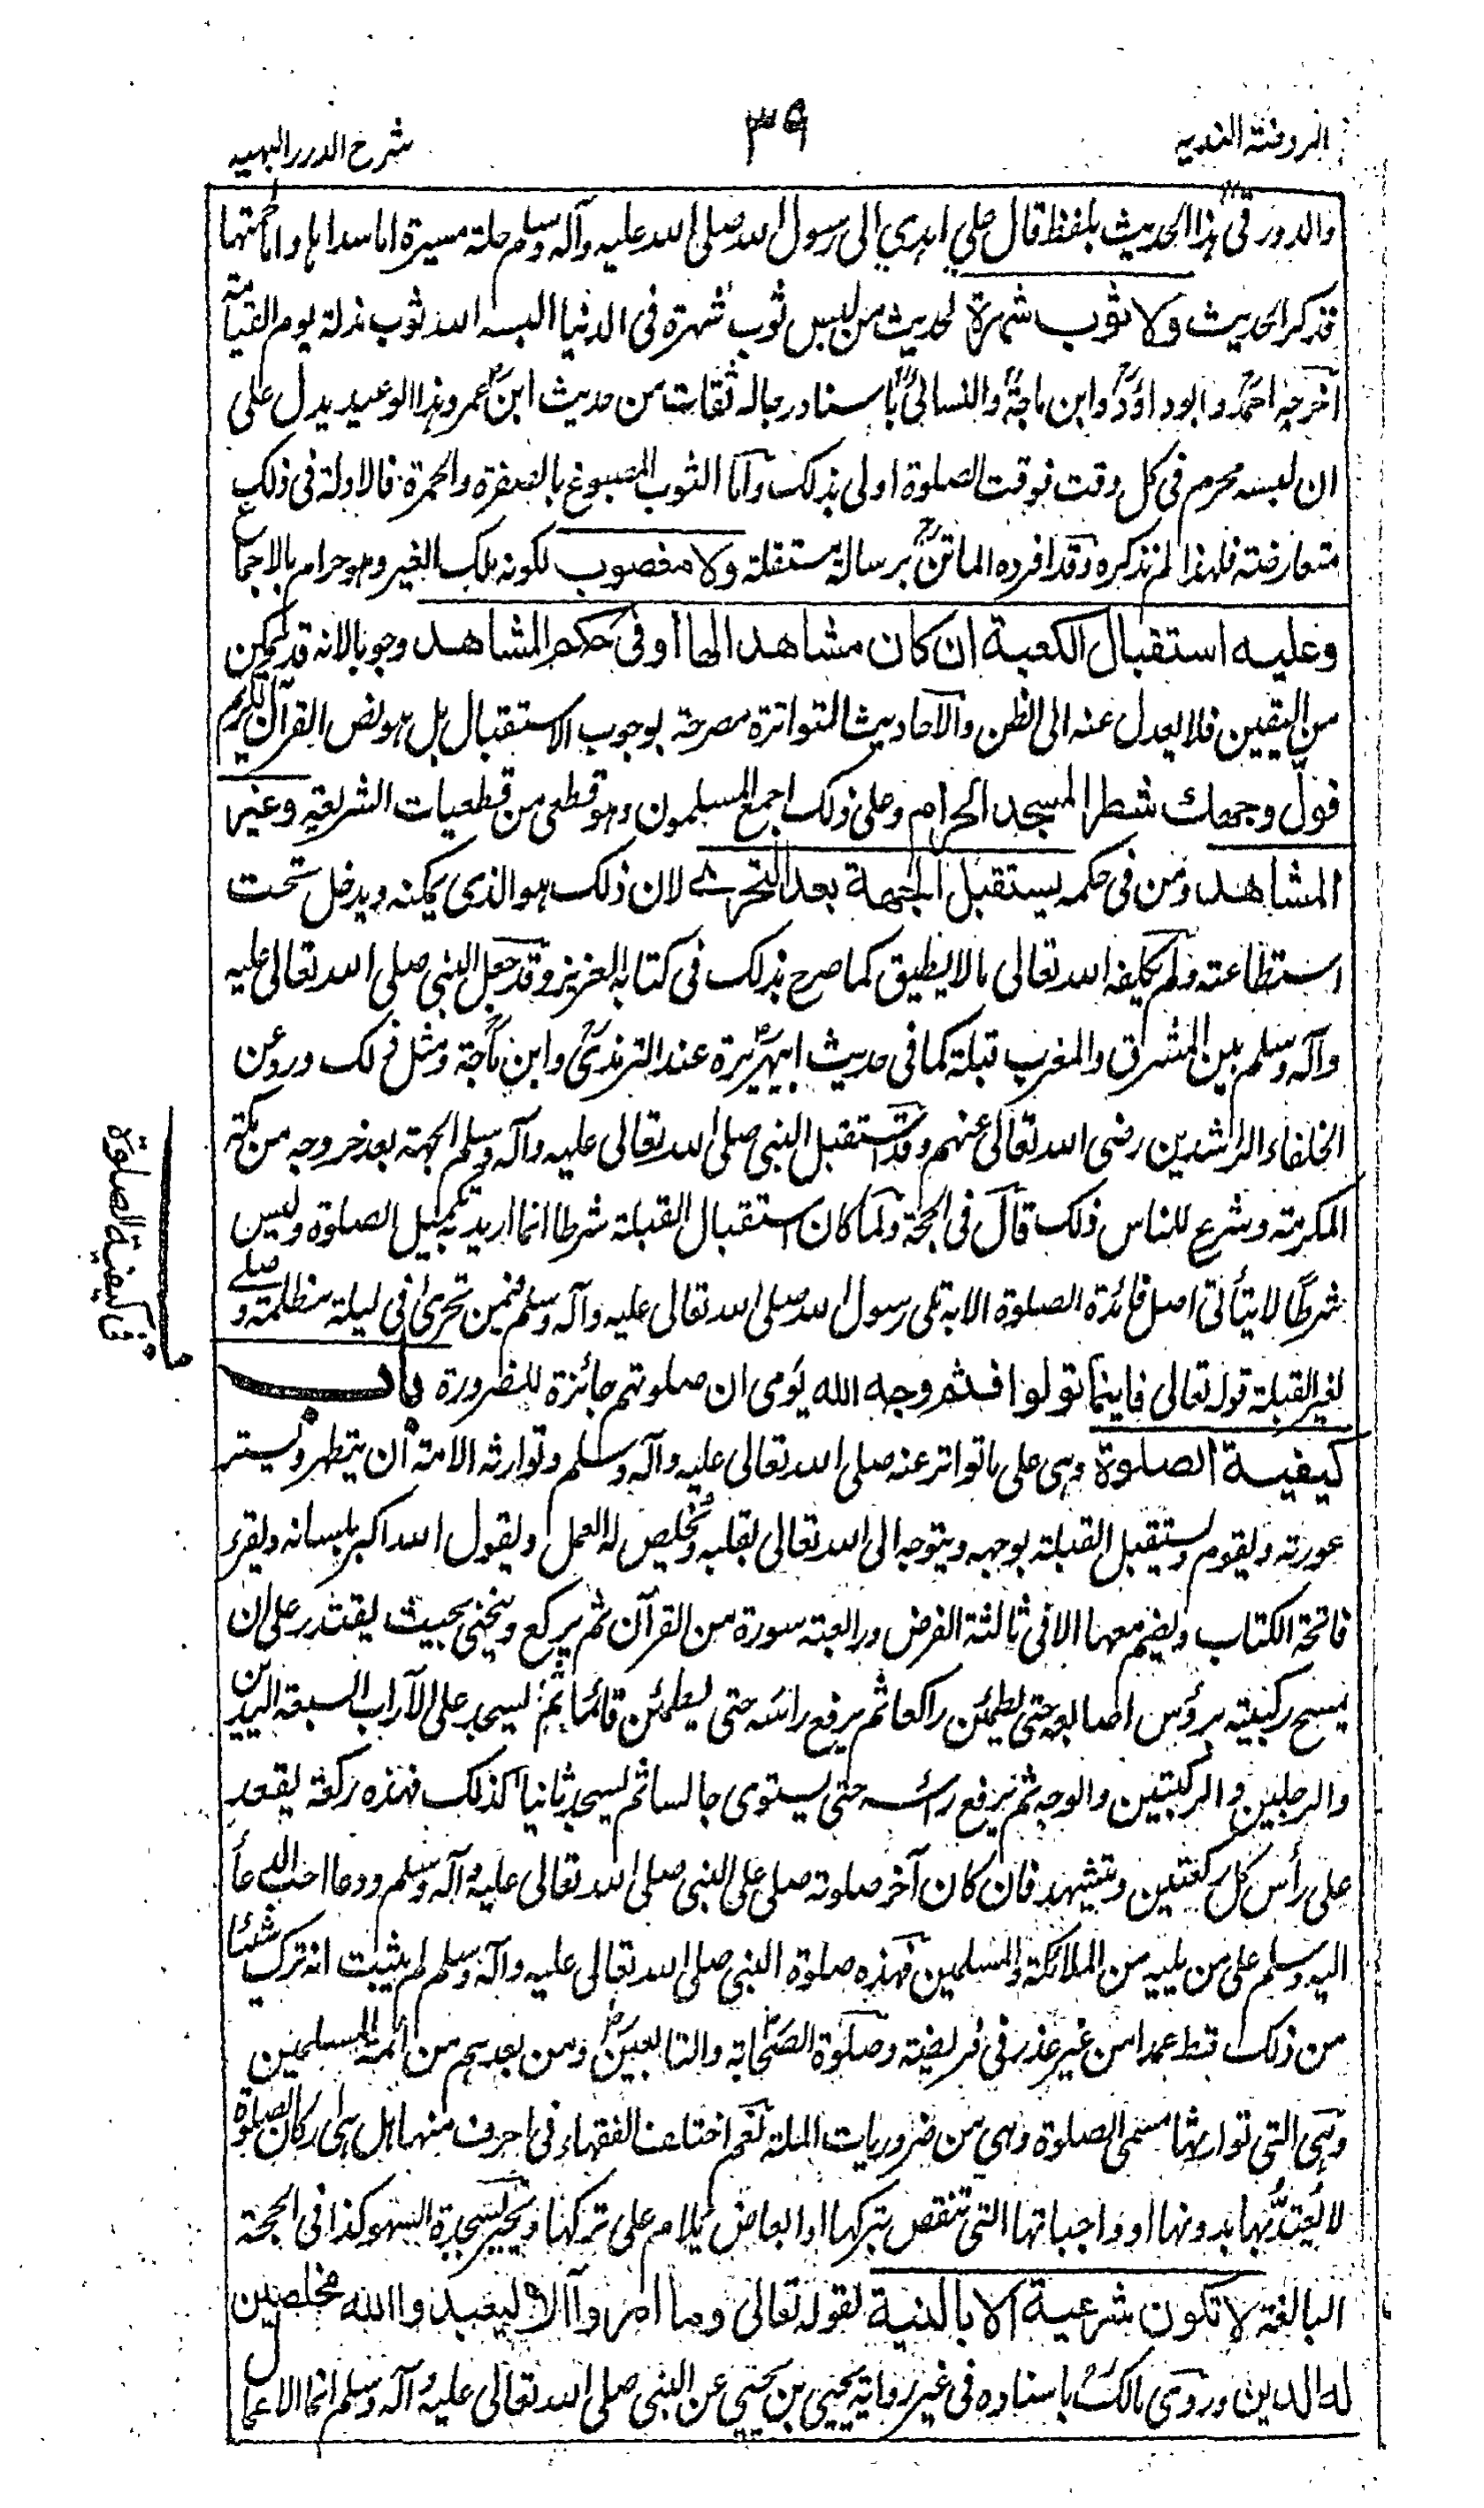 الروضة الندية
٣٩
شرح الدرر البهيه
والدورقى هذا الحديث بلفظ قال على اهدي الى رسول الله صلى الله عليه وآله وسلم حلة مسيرة اما سداها واما لحمتها
فذكر الحديث ولا ثوب شهرة لحديث من لبس ثوب شهرة فى الدنيا البسه الله ثوب مذلة يوم القيامة
اخرجه احمد وابوداؤد وابن ماجة والنسائى باسناد رجاله ثقات من حديث ابن عمر وهذا الوعيد يدل على
ان لبسه محرم فى كل وقت فوقت الصلوة اولى بذلك واما الثوب المصبوغ بالصفرة والحمرة فالادلة فى ذلك
متعارضة فلهذا لم نذكره وقد افرده الماتن برسالة مستقلة ولا مغصوب لكونه ملك الغير وهو حرام بالاجماع
وعليه استقبال الكعبة ان كان مشاهدا لها او فى حكم المشاهد وجوبا لانه قد تمكن
من اليقين فلا يعدل عنه الى الظن والاحاديث المتواترة مصرحة بوجوب الاستقبال بل هو نص القرآن الكريم
فول وجهك شطر المسجد الحرام وعلى ذلك اجمع المسلمون وهو قطعى من قطعيات الشريعة وغير
المشاهد ومن فى حكمه يستقبل الجهة بعد التحرى لان ذلك هو الذى يمكنه ويدخل تحت
استطاعته ولم يكلفه الله تعالى ما لا يطيق كما صرح بذلك فى كتابه العزيز وقد جعل النبى صلى الله تعالى عليه
وآله وسلم بين المشرق والمغرب قبلة كما فى حديث ابيهريرة عند الترمذى وابن ماجة ومثل ذلك ورد عن
الخلفاء الراشدين رضى الله تعالى عنهم وقد استقبل النبى صلى الله تعالى عليه وآله وسلم الجهة بعد خروجه من مكة
المكرمة وشرع للناس ذلك قال فى الحجة ولما كان استقبال القبلة شرطا انما اريد به تكميل الصلوة وليس
شرطا لا يتأتى اصل فائدة الصلوة الا به تلى رسول الله صلى الله تعالى عليه وآله وسلم فيمن تحرى فى ليلة مظلمة وصلى
لغير القبلة قوله تعالى فاينما تولوا فثم وجه الله يومى ان صلوتهم جائزة للضرورة باب
كيفية الصلوة وهى على ما تواتر عنه صلى الله تعالى عليه وآله وسلم وتوارثه الامة ان يتطهر ويستر
عورته ويقوم ويستقبل القبلة بوجهه ويتوجه الى الله تعالى بقلبه ويخلص له العمل ويقول الله اكبر بلسانه ويقرء
فاتحة الكتاب ويضم معها الا فى ثالثة الفرض ورابعته سورة من القرآن ثم يركع وينحنى بحيث يقتدر على ان
يمسح ركبتيه برؤس اصابعه حتى يطمئن راكعا ثم يرفع راسه حتى يطمئن قائما ثم يسجد على الآراب السبعة اليدين
والرجلين والركبتين والوجه ثم يرفع رأسه حتى يستوى جالسا ثم يسجد ثانيا كذلك فهذه ركعة يقعد
على رأس كل ركعتين ويتشهد فان كان آخر صلوته صلى على النبى صلى الله تعالى عليه وآله وسلم ودعا احب الدعأ
اليه وسلم على من يليه من الملائكة والمسلمين فهذه صلوة النبى صلى الله تعالى عليه وآله وسلم لم يثبت انه ترك شئا
من ذلك قط عمدا من غير عذر فى فريضة وصلوة الصحابة والتابعين ومن بعدهم من ائمة المسلمين
وهى التى توارثها مسمى الصلوة وهى من ضروريات الملة نعم اختلف الفقهاء فى احرف منها هل هى اركان الصلوة
لا يعتد بها بدونها او واجباتها التى تنقص بتركها او ابعاض يلام على تركها ويجبر بسجدة السهو كذا فى الحجة
البالغة لا تكون شرعية الا بالنية لقوله تعالى وما امروا الا ليعبدوا الله مخلصين
له الدين وروى مالك باسناده فى غير رواية يحيى بن يحيى عن النبى صلى الله تعالى عليه وآله وسلم انما الاعمال
ف كيفية الصلوة